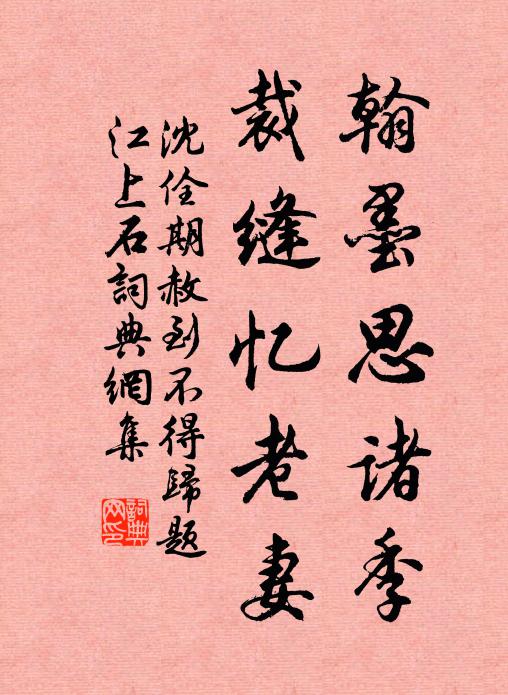 翰墨思諸季
裁縫忆老妻
沈佺期赦到不得歸题
江上石詞典網集
詞典网印